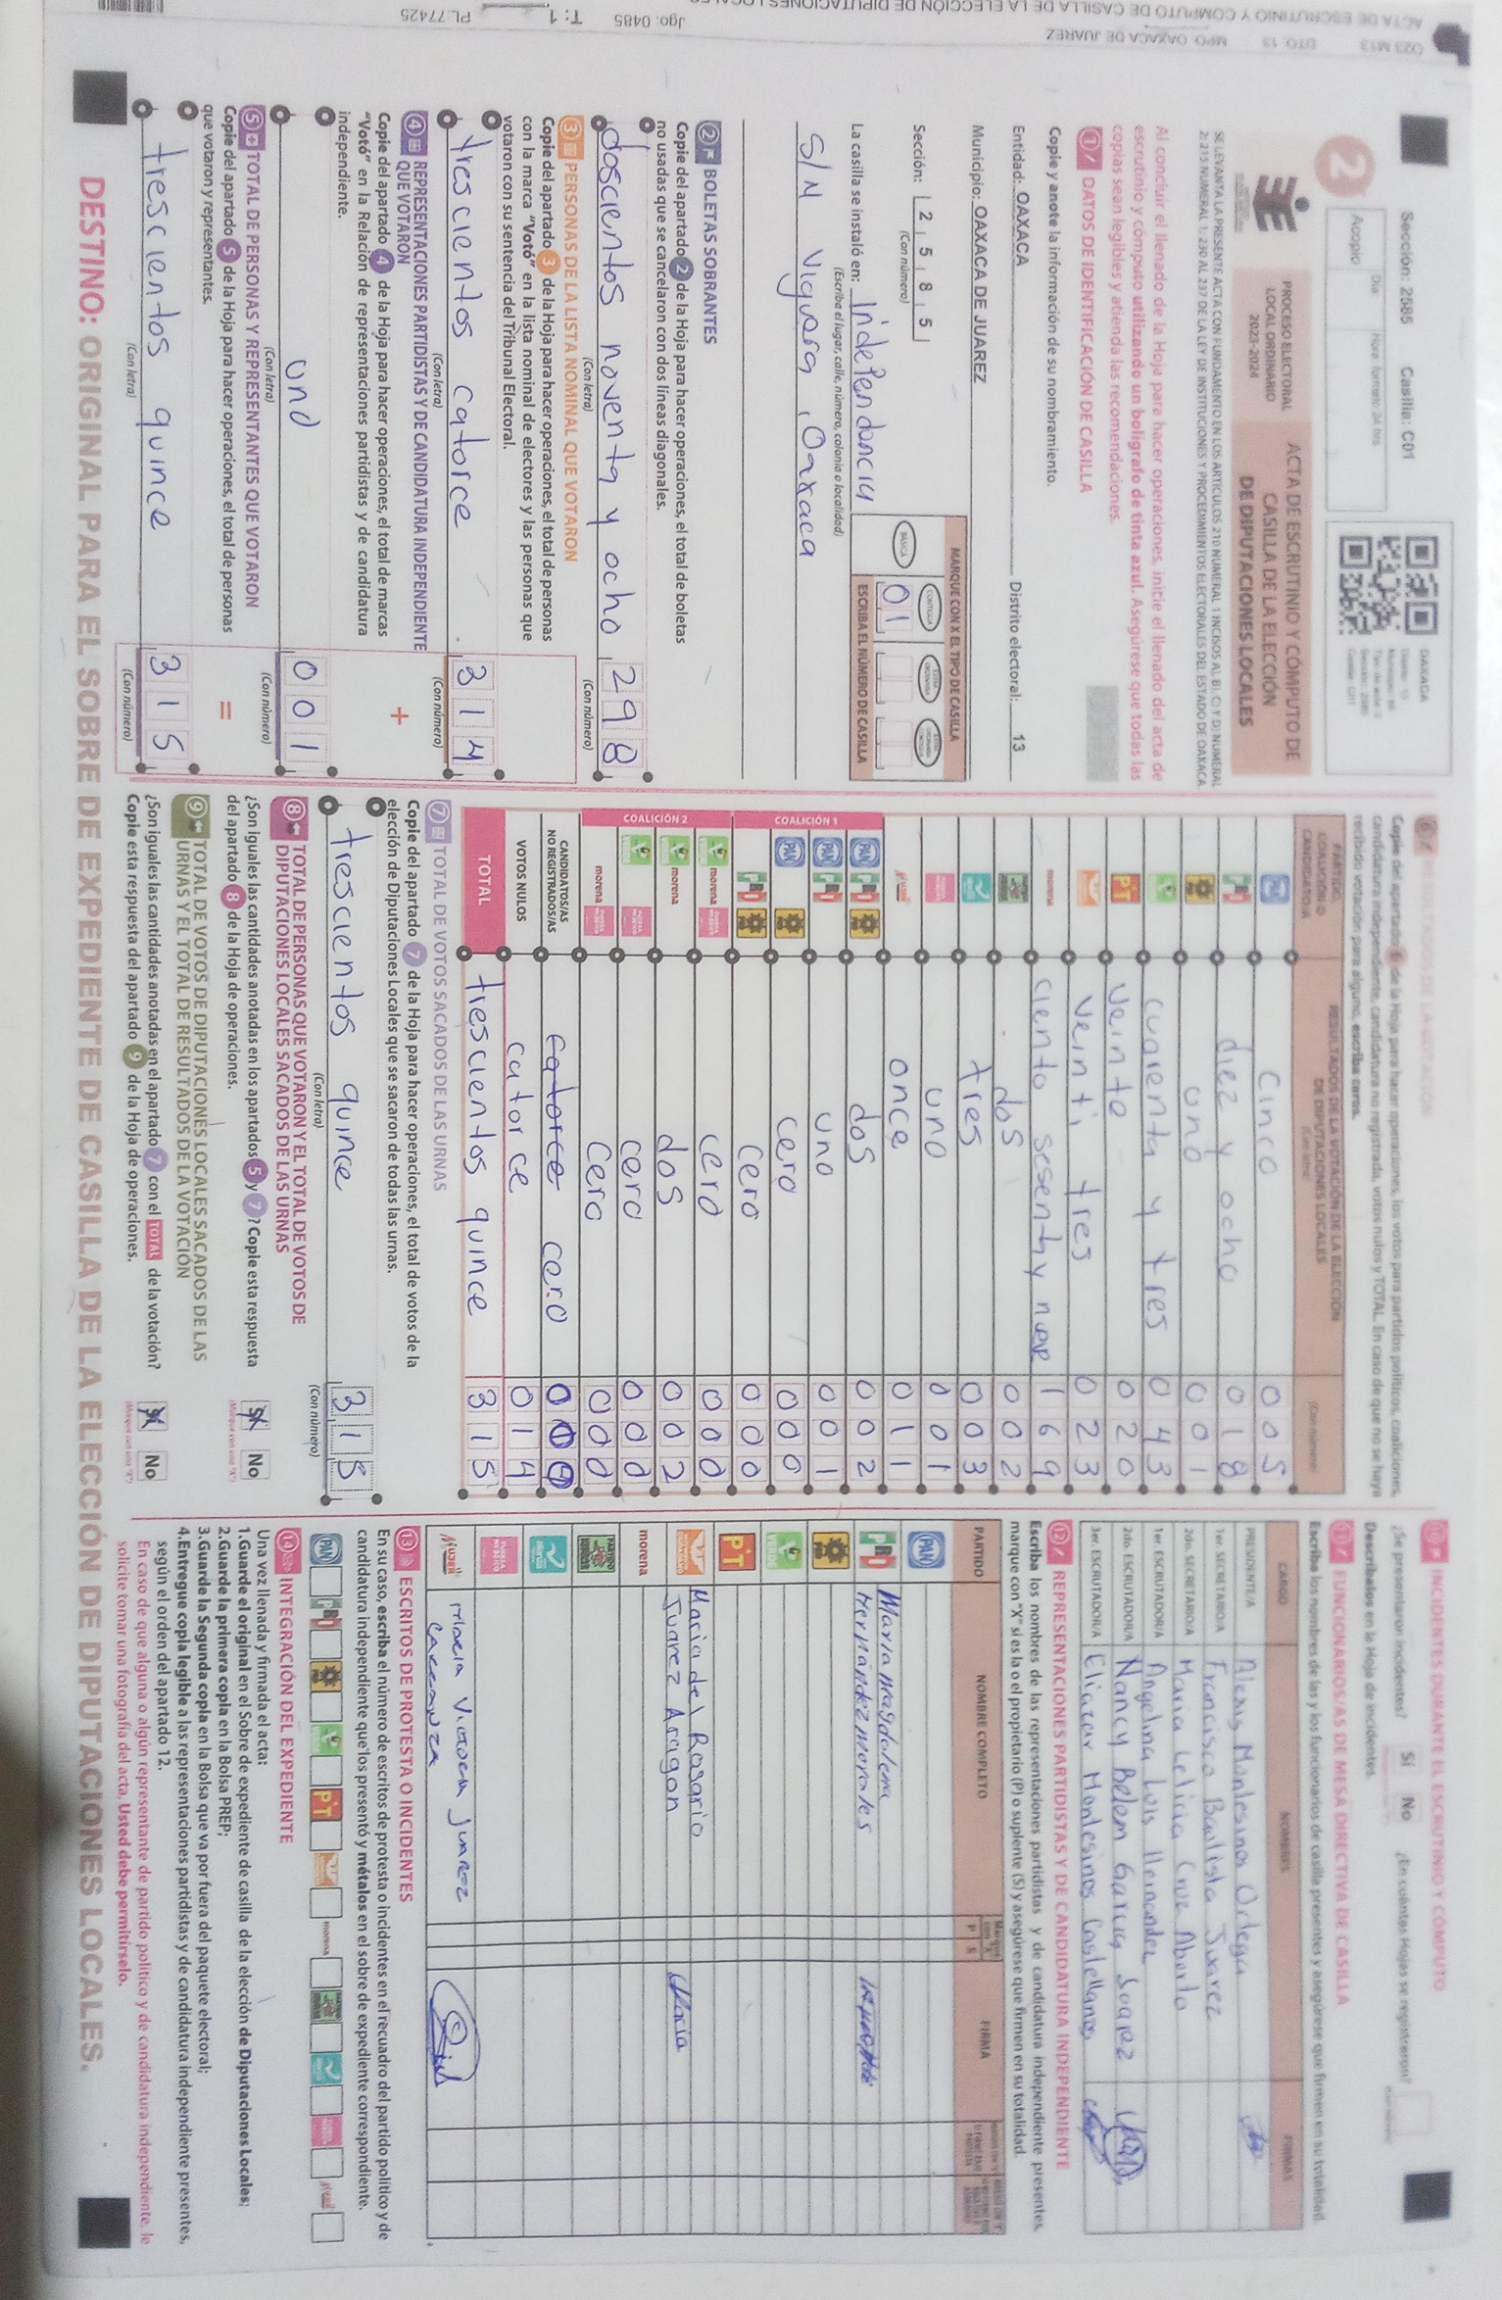 023 M13 DTO. 13 MPO. OAXACA DE JUAREZ
ACTA DE ESCRUTINIO Y CÓMPUTO DE CASILLA DE LA ELECCIÓN DE DIPUTACIONES
Jgo: 0485 T: 1 PL.77425
Sección: 2585 Casilla: C01
2
Acopio
Día:
Hora: formato 24 hrs
OAXACA
PROCESO ELECTORAL
LOCAL ORDINARIO
2023-2024
ACTA DE ESCRUTINIO Y CÓMPUTO DE
CASILLA DE LA ELECCIÓN
DE DIPUTACIONES LOCALES
SE LEVANTA LA PRESENTE ACTA CON FUNDAMENTO EN LOS ARTÍCULOS 210 NUMERAL 1 INCISOS A), B), C) Y D) NUMERAL
2; 215 NUMERAL 1; 230 AL 237 DE LA LEY DE INSTITUCIONES Y PROCEDIMIENTOS ELECTORALES DEL ESTADO DE OAXACA.
Al concluir el llenado de la Hoja para hacer operaciones, inicie el llenado del acta de
escrutinio y cómputo utilizando un bolígrafo de tinta azul. Asegúrese que todas las
copias sean legibles y atienda las recomendaciones.
1 DATOS DE IDENTIFICACIÓN DE CASILLA
Copie y anote la información de su nombramiento.
Entidad: OAXACA Distrito electoral: 13
Municipio: OAXACA DE JUAREZ
Sección: 2 5 8 5
(Con número)
MARQUE CON X EL TIPO DE CASILLA
BÁSICA CONTIGUA
01
ESCRIBA EL NÚMERO DE CASILLA
La casilla se instaló en: Independencia
(Escriba el lugar, calle, número, colonia o localidad)
S/N Viguera, Oaxaca
2 BOLETAS SOBRANTES
Copie del apartado 2 de la Hoja para hacer operaciones, el total de boletas
no usadas que se cancelaron con dos líneas diagonales.
doscientos noventa y ocho 298
(Con letra) (Con número)
3 PERSONAS DE LA LISTA NOMINAL QUE VOTARON
Copie del apartado 3 de la Hoja para hacer operaciones, el total de personas
con la marca "Votó" en la lista nominal de electores y las personas que
votaron con su sentencia del Tribunal Electoral.
trescientos catorce 314
(Con letra) (Con número)
4 REPRESENTACIONES PARTIDISTAS Y DE CANDIDATURA INDEPENDIENTE
QUE VOTARON
Copie del apartado 4 de la Hoja para hacer operaciones, el total de marcas
"Votó" en la Relación de representaciones partidistas y de candidatura
independiente.
+
uno 001
(Con letra) (Con número)
5 TOTAL DE PERSONAS Y REPRESENTANTES QUE VOTARON
Copie del apartado 5 de la Hoja para hacer operaciones, el total de personas
que votaron y representantes.
=
trescientos quince 315
(Con letra) (Con número)
Copie del apartado 6 de la Hoja para hacer operaciones, los votos para partidos políticos, coaliciones,
candidatura independiente, candidatura no registrada, votos nulos y TOTAL. En caso de que no se haya
recibido votación para alguno, escriba ceros.
PARTIDO, COALICIÓN O CANDIDATO/A
RESULTADOS DE LA VOTACIÓN DE LA ELECCIÓN
DE DIPUTACIONES LOCALES
(Con letra) (Con número)
PAN cinco 005
PRI diez y ocho 018
uno 001
cuarenta y tres 043
PT veinte 020
veinti tres 023
morena ciento sesenta y nueve 169
dos 002
tres 003
uno 001
once 011
COALICIÓN 1
PAN PRI dos 002
PAN PRI uno 001
PAN cero 000
PRI cero 000
COALICIÓN 2
morena cero 000
morena dos 002
cero 000
morena cero 000
CANDIDATOS/AS
NO REGISTRADOS/AS catorce cero
VOTOS NULOS catorce 014
TOTAL trescientos quince 315
7 TOTAL DE VOTOS SACADOS DE LAS URNAS
Copie del apartado 7 de la Hoja para hacer operaciones, el total de votos de la
elección de Diputaciones Locales que se sacaron de todas las urnas.
trescientos quince 315
(Con letra) (Con número)
8 TOTAL DE PERSONAS QUE VOTARON Y EL TOTAL DE VOTOS DE
DIPUTACIONES LOCALES SACADOS DE LAS URNAS
¿Son iguales las cantidades anotadas en los apartados 5 y 7? Copie esta respuesta
del apartado 8 de la Hoja de operaciones.
Sí No
9 TOTAL DE VOTOS DE DIPUTACIONES LOCALES SACADOS DE LAS
URNAS Y EL TOTAL DE RESULTADOS DE LA VOTACIÓN
¿Son iguales las cantidades anotadas en el apartado 7 con el TOTAL de la votación?
Copie esta respuesta del apartado 9 de la Hoja de operaciones.
Sí No
10 INCIDENTES DURANTE EL ESCRUTINIO Y CÓMPUTO
¿Se presentaron incidentes? Sí No ¿En cuántas Hojas se registraron?
Descríbalos en la Hoja de incidentes.
11 FUNCIONARIOS/AS DE MESA DIRECTIVA DE CASILLA
Escriba los nombres de las y los funcionarios de casilla presentes y asegúrese que firmen en su totalidad.
CARGO NOMBRES FIRMAS
PRESIDENTE/A Alexis Montesinos Ortega
1er. SECRETARIO/A Francisco Bautista Juarez
2do. SECRETARIO/A Maria Leticia Cruz Aborto
1er. ESCRUTADOR/A Angelina Luis Hernandez
2do. ESCRUTADOR/A Nancy Belem Garcia Suarez
3er. ESCRUTADOR/A Eliazar Montesinos Castellanos
12 REPRESENTACIONES PARTIDISTAS Y DE CANDIDATURA INDEPENDIENTE
Escriba los nombres de las representaciones partidistas y de candidatura independiente presentes,
marque con "X" si es la o el propietario (P) o suplente (S) y asegúrese que firmen en su totalidad.
PARTIDO NOMBRE COMPLETO P S FIRMA
PAN
PRI Maria magdalena
Hernández morales
VERDE
PT
Maria del Rosario
Juarez Aragon Maria
morena
13 ESCRITOS DE PROTESTA O INCIDENTES
En su caso, escriba el número de escritos de protesta o incidentes en el recuadro del partido político y de
candidatura independiente que los presentó y métalos en el sobre de expediente correspondiente.
PAN PRI PT morena
14 INTEGRACIÓN DEL EXPEDIENTE
Una vez llenada y firmada el acta:
1.Guarde el original en el Sobre de expediente de casilla de la elección de Diputaciones Locales;
2.Guarde la primera copia en la Bolsa PREP;
3.Guarde la Segunda copia en la Bolsa que va por fuera del paquete electoral;
4.Entregue copia legible a las representaciones partidistas y de candidatura independiente presentes,
según el orden del apartado 12.
En caso de que alguna o algún representante de partido político y de candidatura independiente, le
solicite tomar una fotografía del acta, Usted debe permitírselo.
DESTINO: ORIGINAL PARA EL SOBRE DE EXPEDIENTE DE CASILLA DE LA ELECCIÓN DE DIPUTACIONES LOCALES.